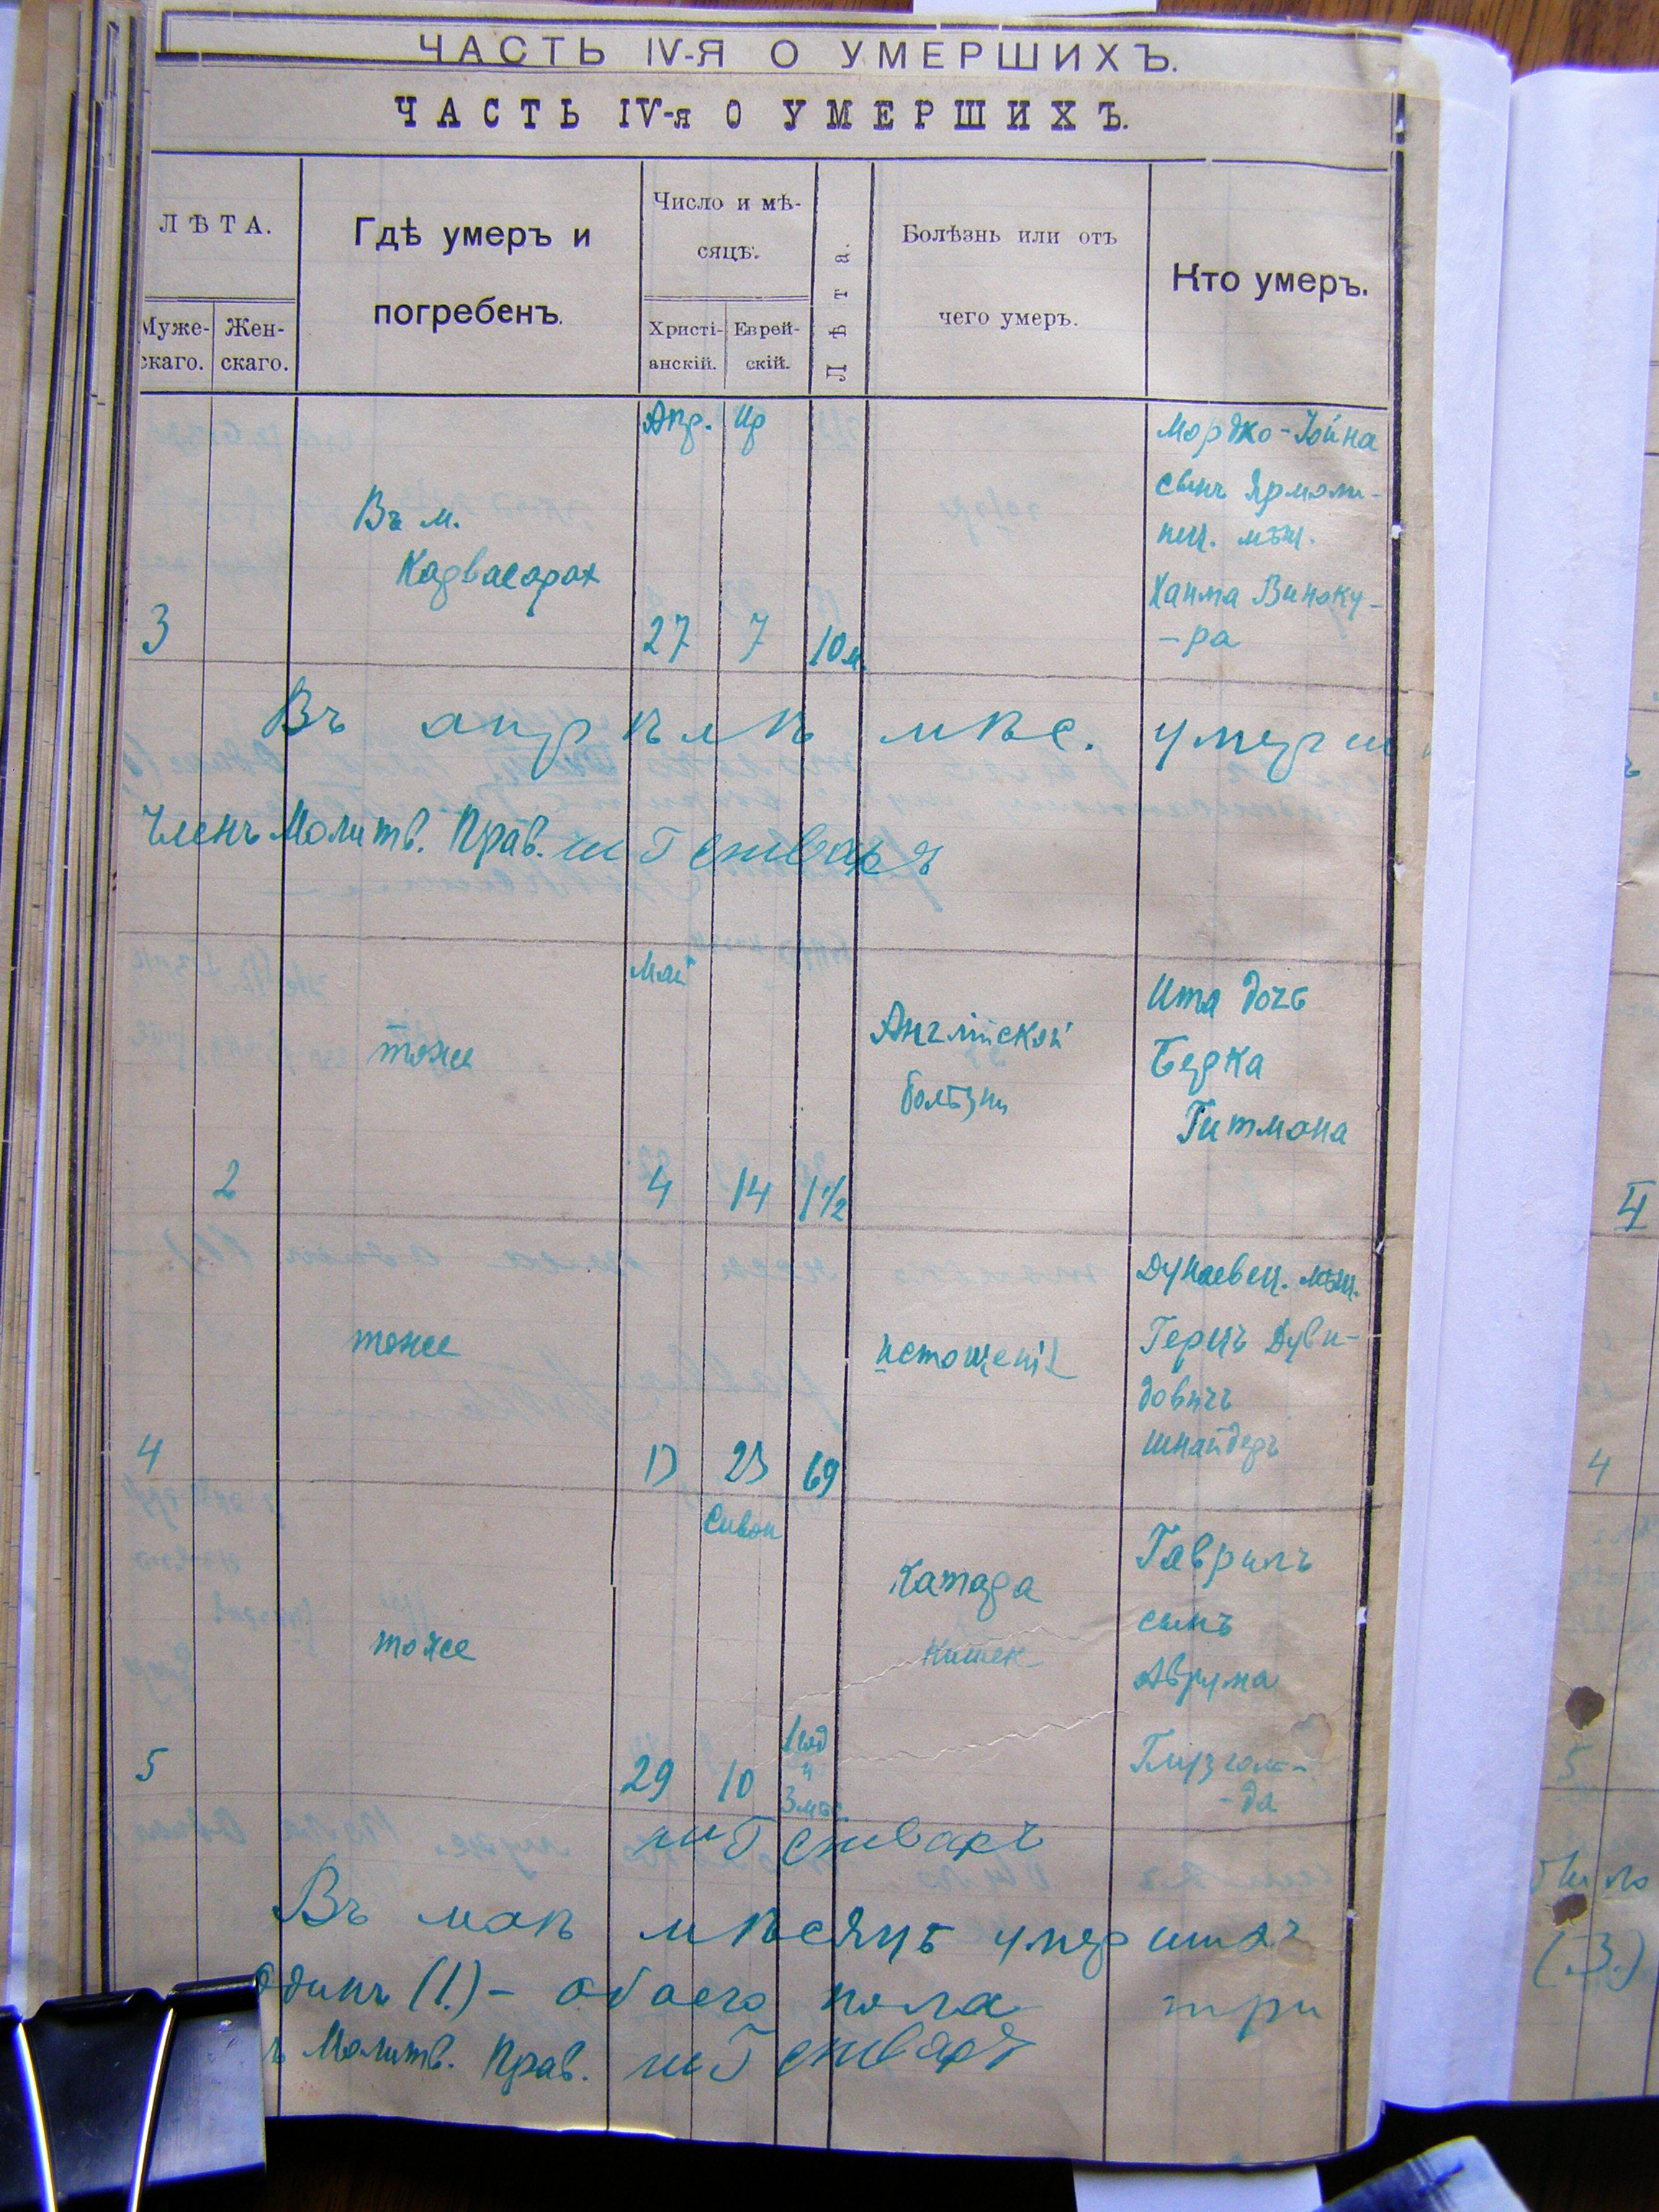 ЧАСТЬ IV-Я О УМЕРШИХЪ.
ЧАСТЬ IV-я О УМЕРШИХЪ.
ЛѢТА.
Муже-
скаго.
Жен-
скаго.
Гдѣ умеръ и
погребенъ.
Число и мѣ-
сяцъ.
Христі-
анскій.
Еврей-
скій.
Лѣта.
Болѣзнь или отъ
чего умеръ.
Кто умеръ.
Апр. Ир
Въ м.
Кадвасарах
3
27 7 10 м.
Мордко-Іойна
сынъ Ярмоли-
нец. мѣщ.
Хаима Виноку-
-ра
Въ апрѣлѣ мѣс. умерш
Членъ Молитв. Прав.
Май
тоже
2
4 14 1 1/2
Англійской
болѣзни
Ита дочь
Берка
Гитмана
тоже
4
13 23 69
истощенія
Дунаевец. мѣщ.
Герцъ Дуви-
довичъ
Шнайдеръ
Сиван
тоже
5
29 10
1 год
и
3 мѣс.
Катара
кишек
Гаврилъ
сынъ
Аврума
Глузгол-
-да
Въ маѣ мѣсяцѣ умершихъ
одинъ (1.) - обоего пола три
ъ Молитв. Прав.
4
5
(3.)